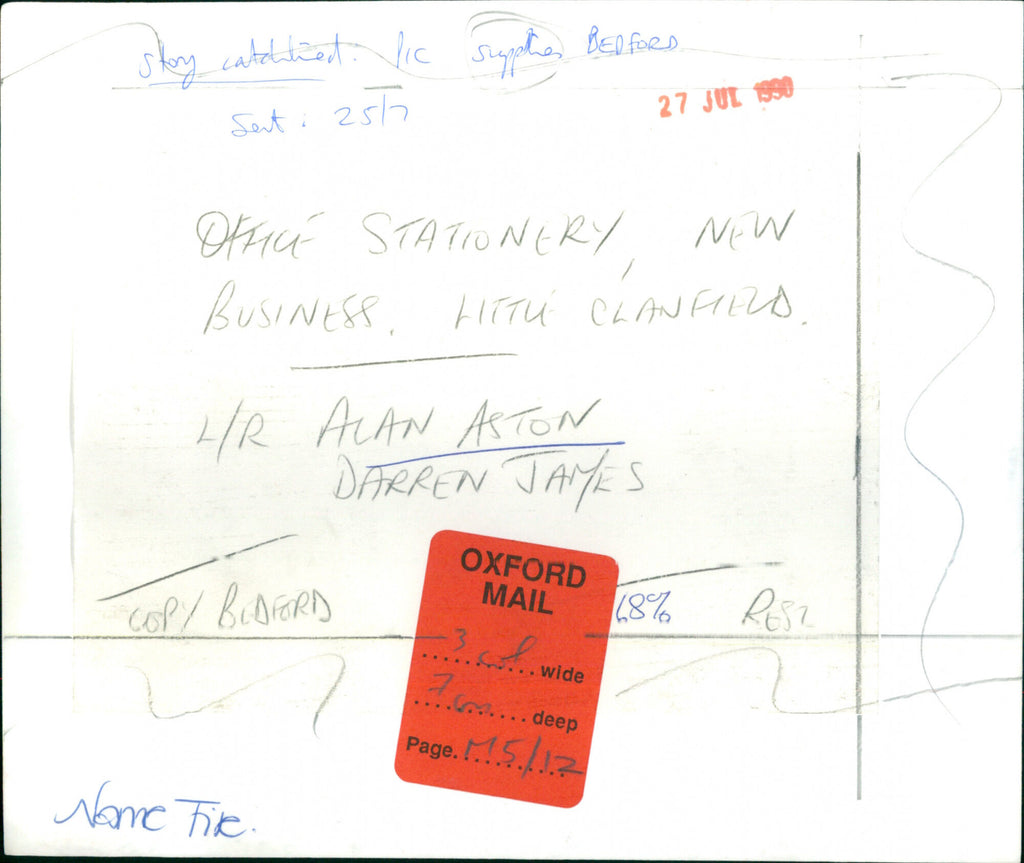 story catchlined. PIC supplies BEDFORD
Sent: 25/7
27 JUL 1990
OFFICE STATIONERY, NEW
BUSINESS. LITTLE CLANFIELD.
L/R ALAN ASTON
DARREN JAMES
COPY BEDFORD
68%
OXFORD
MAIL
3 col wide
7 cm deep
Page M5/12
Name File.